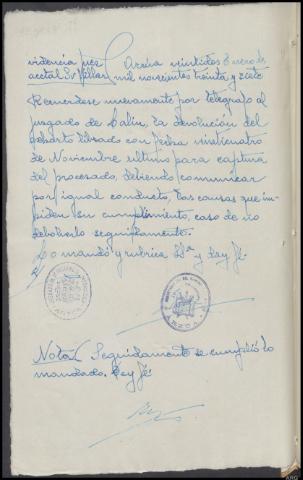 videncia juez Arzúa veintidos Enero de
acctal Sr Villar mil novecientos treinta y siete
Recuerdese nuevamente por telegrafo al
juzgado de Lalin, la devolución del
exhorto librado con fecha veinticuatro
de Noviembre ultimo para captura
del procesado, debiendo comunicar
por igual conducto, las causas que im-
piden su cumplimiento, caso de no
debolverlo seguidamente.
Lo mandó y rubrica Sª y doy fé.
ARZUA
Nota/ Seguidamente se cumplió lo
mandado. Doy fé.